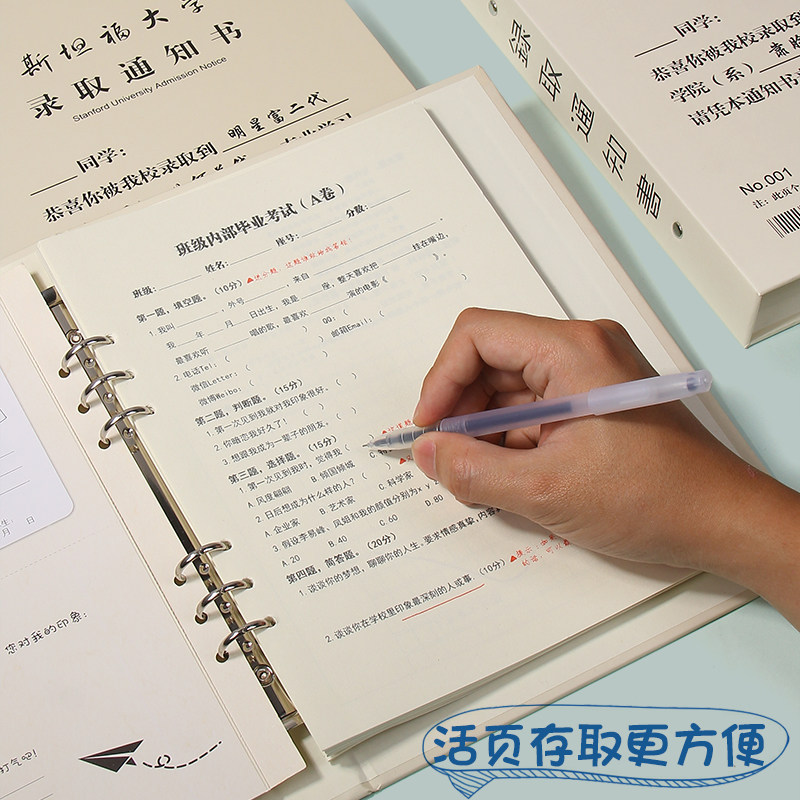 斯坦福大学
录取通知书
Stanford University Admission Notice
同学:
恭喜你被我校录取到 明星富二代
录取通知書
同学:
恭喜你被我校录取到
学院(系)
请凭本通知书
No.001
班级内部毕业考试(A卷)
班级: 姓名: 座号: 分数:
第一题,填空题。(10分)
1.我叫 ,外号 ,来自 ,整天喜欢把 挂在嘴边,
我 年 月 日出生,我是 座,
最喜欢听 唱的歌,最喜欢 演的电影( )
2.电话Tel:( ) QQ:( )
微信Letter:( ) 邮箱Email:( )
微博Weibo:( )
第二题,判断题。(15分)
1.第一次见到我就对我印象很好。( )
2.你暗恋我好久了!( )
3.想跟我成为一辈子的朋友。( )
第三题,选择题。(15分)
1.第一次见到我时,觉得我(
A.风度翩翩 B.倾国倾城
2.日后想成为什么样的人?( )
A.企业家 B.艺术家 C.科学家
3.假设李易峰、凤姐和我的颜值分别为x
A.20 B.40 C.60 D.80
第四题,简答题。(20分)
1.谈谈你的梦想,聊聊你的人生。要求情感真挚、内容
2.谈谈你在学校里印象最深刻的人或事(10分)
月 日
您对我的印象:
打气吧!
活页存取更方便